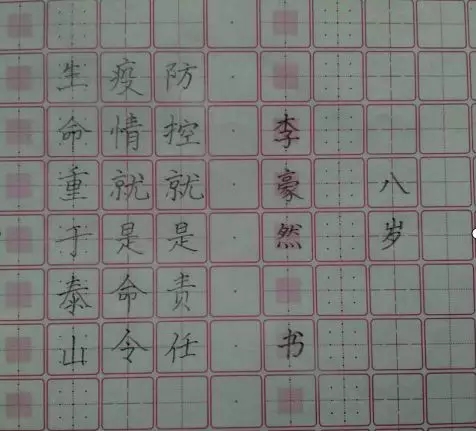 生命重于泰山
疫情就是命令
防控就是责任
李豪然书
八岁